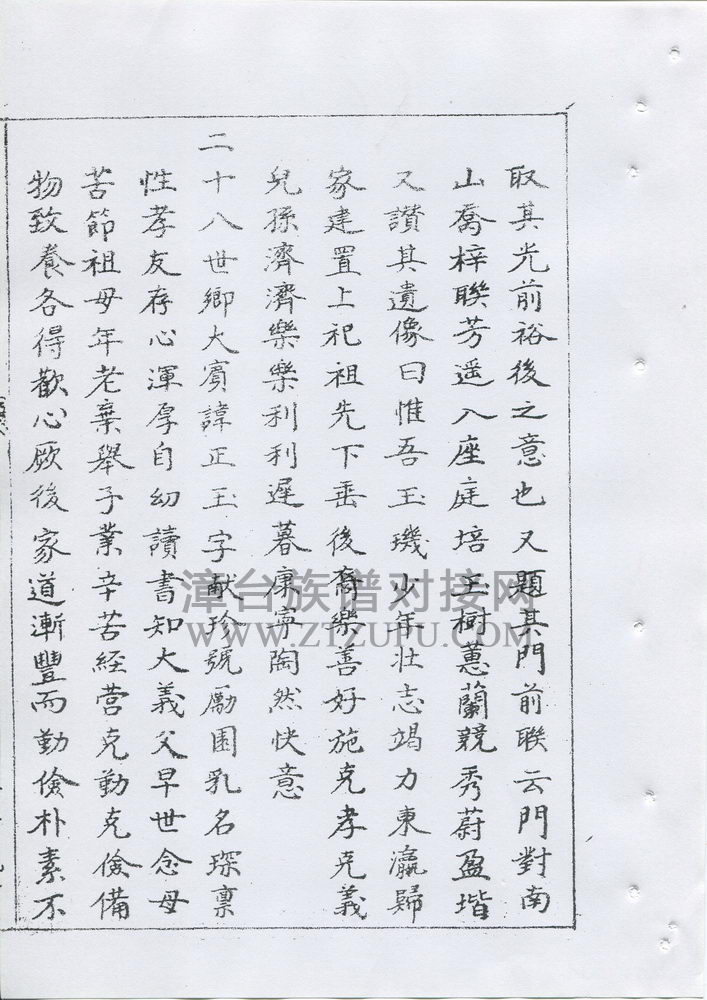 取其光前裕後之意也又題其門前聯云門對南
山喬梓聯芳遥入座庭培玉樹蕙蘭競秀蔚盈堦
又讃其遺像曰惟吾玉璣少年壮志竭力東瀛歸
家建置上祀祖先下垂後裔樂善好施克孝克義
兒孫濟濟樂樂利利遲暮康寧陶然快意
二十八世鄉大賓諱正玉字献珍號勵園乳名琛禀
性孝友存心渾厚自幼讀書知大義父早世念母
苦節祖母年老棄舉子業辛苦經营克勤克儉備
物致養各得歡心厥後家道漸豐而勤儉朴素不
漳台族谱对接网
WWW.ZTZUPU.COM